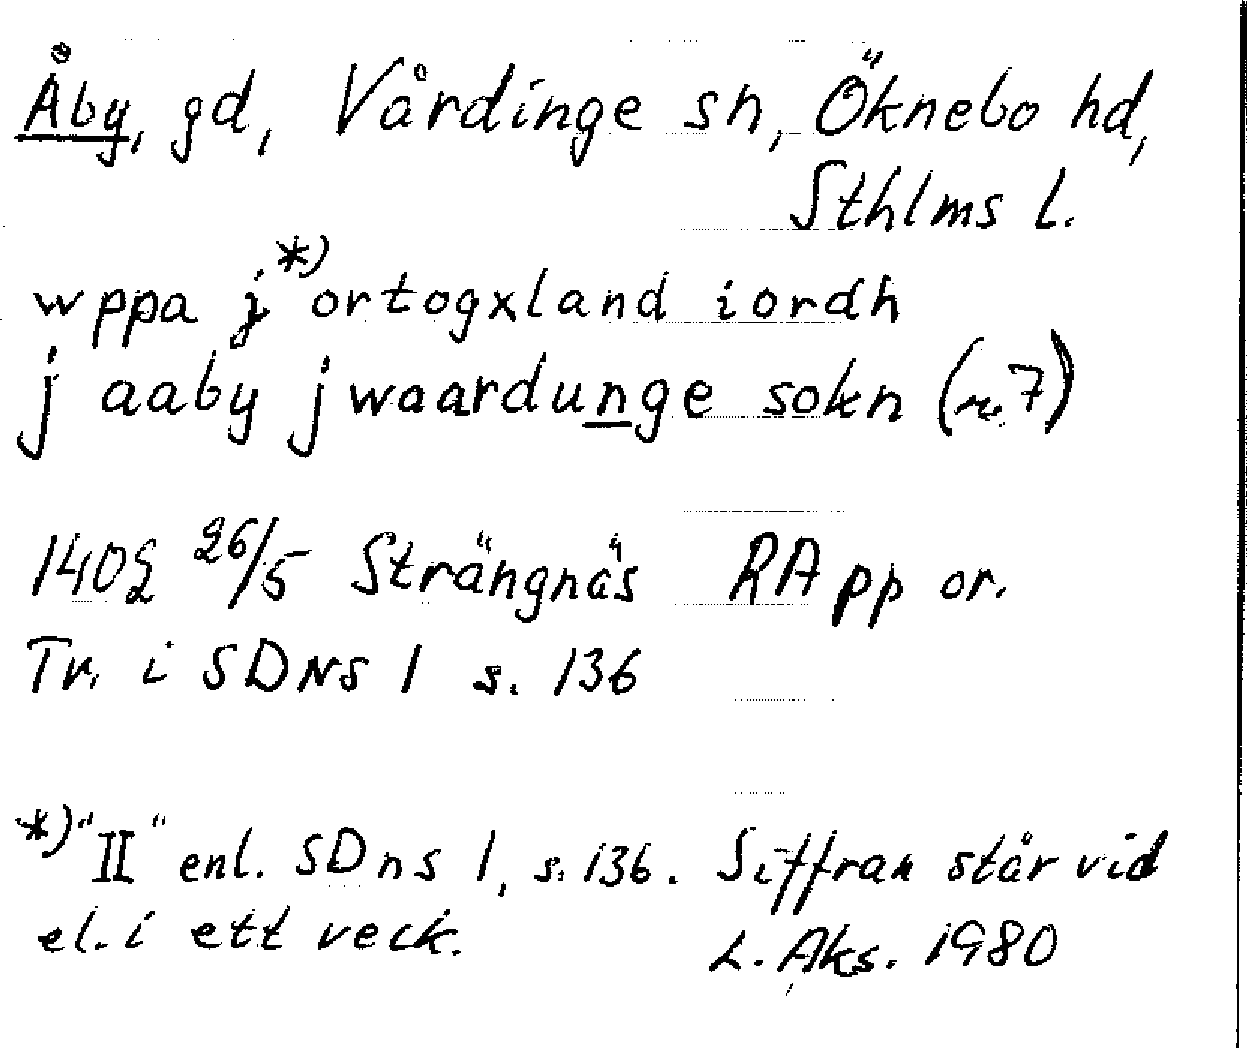 Åby, gd, Vårdinge sn, Öknebo hd,
Sthlms l.
wppa j*) ortogxland iordh
j aaby j waardunge sokn (r. 7)
1402 26/5 Strängnäs RA pp or.
Tr. i SDNS 1 s. 136
*) "II" enl. SDns 1, s. 136. Siffran står vid
el. i ett veck. L. Aks. 1980